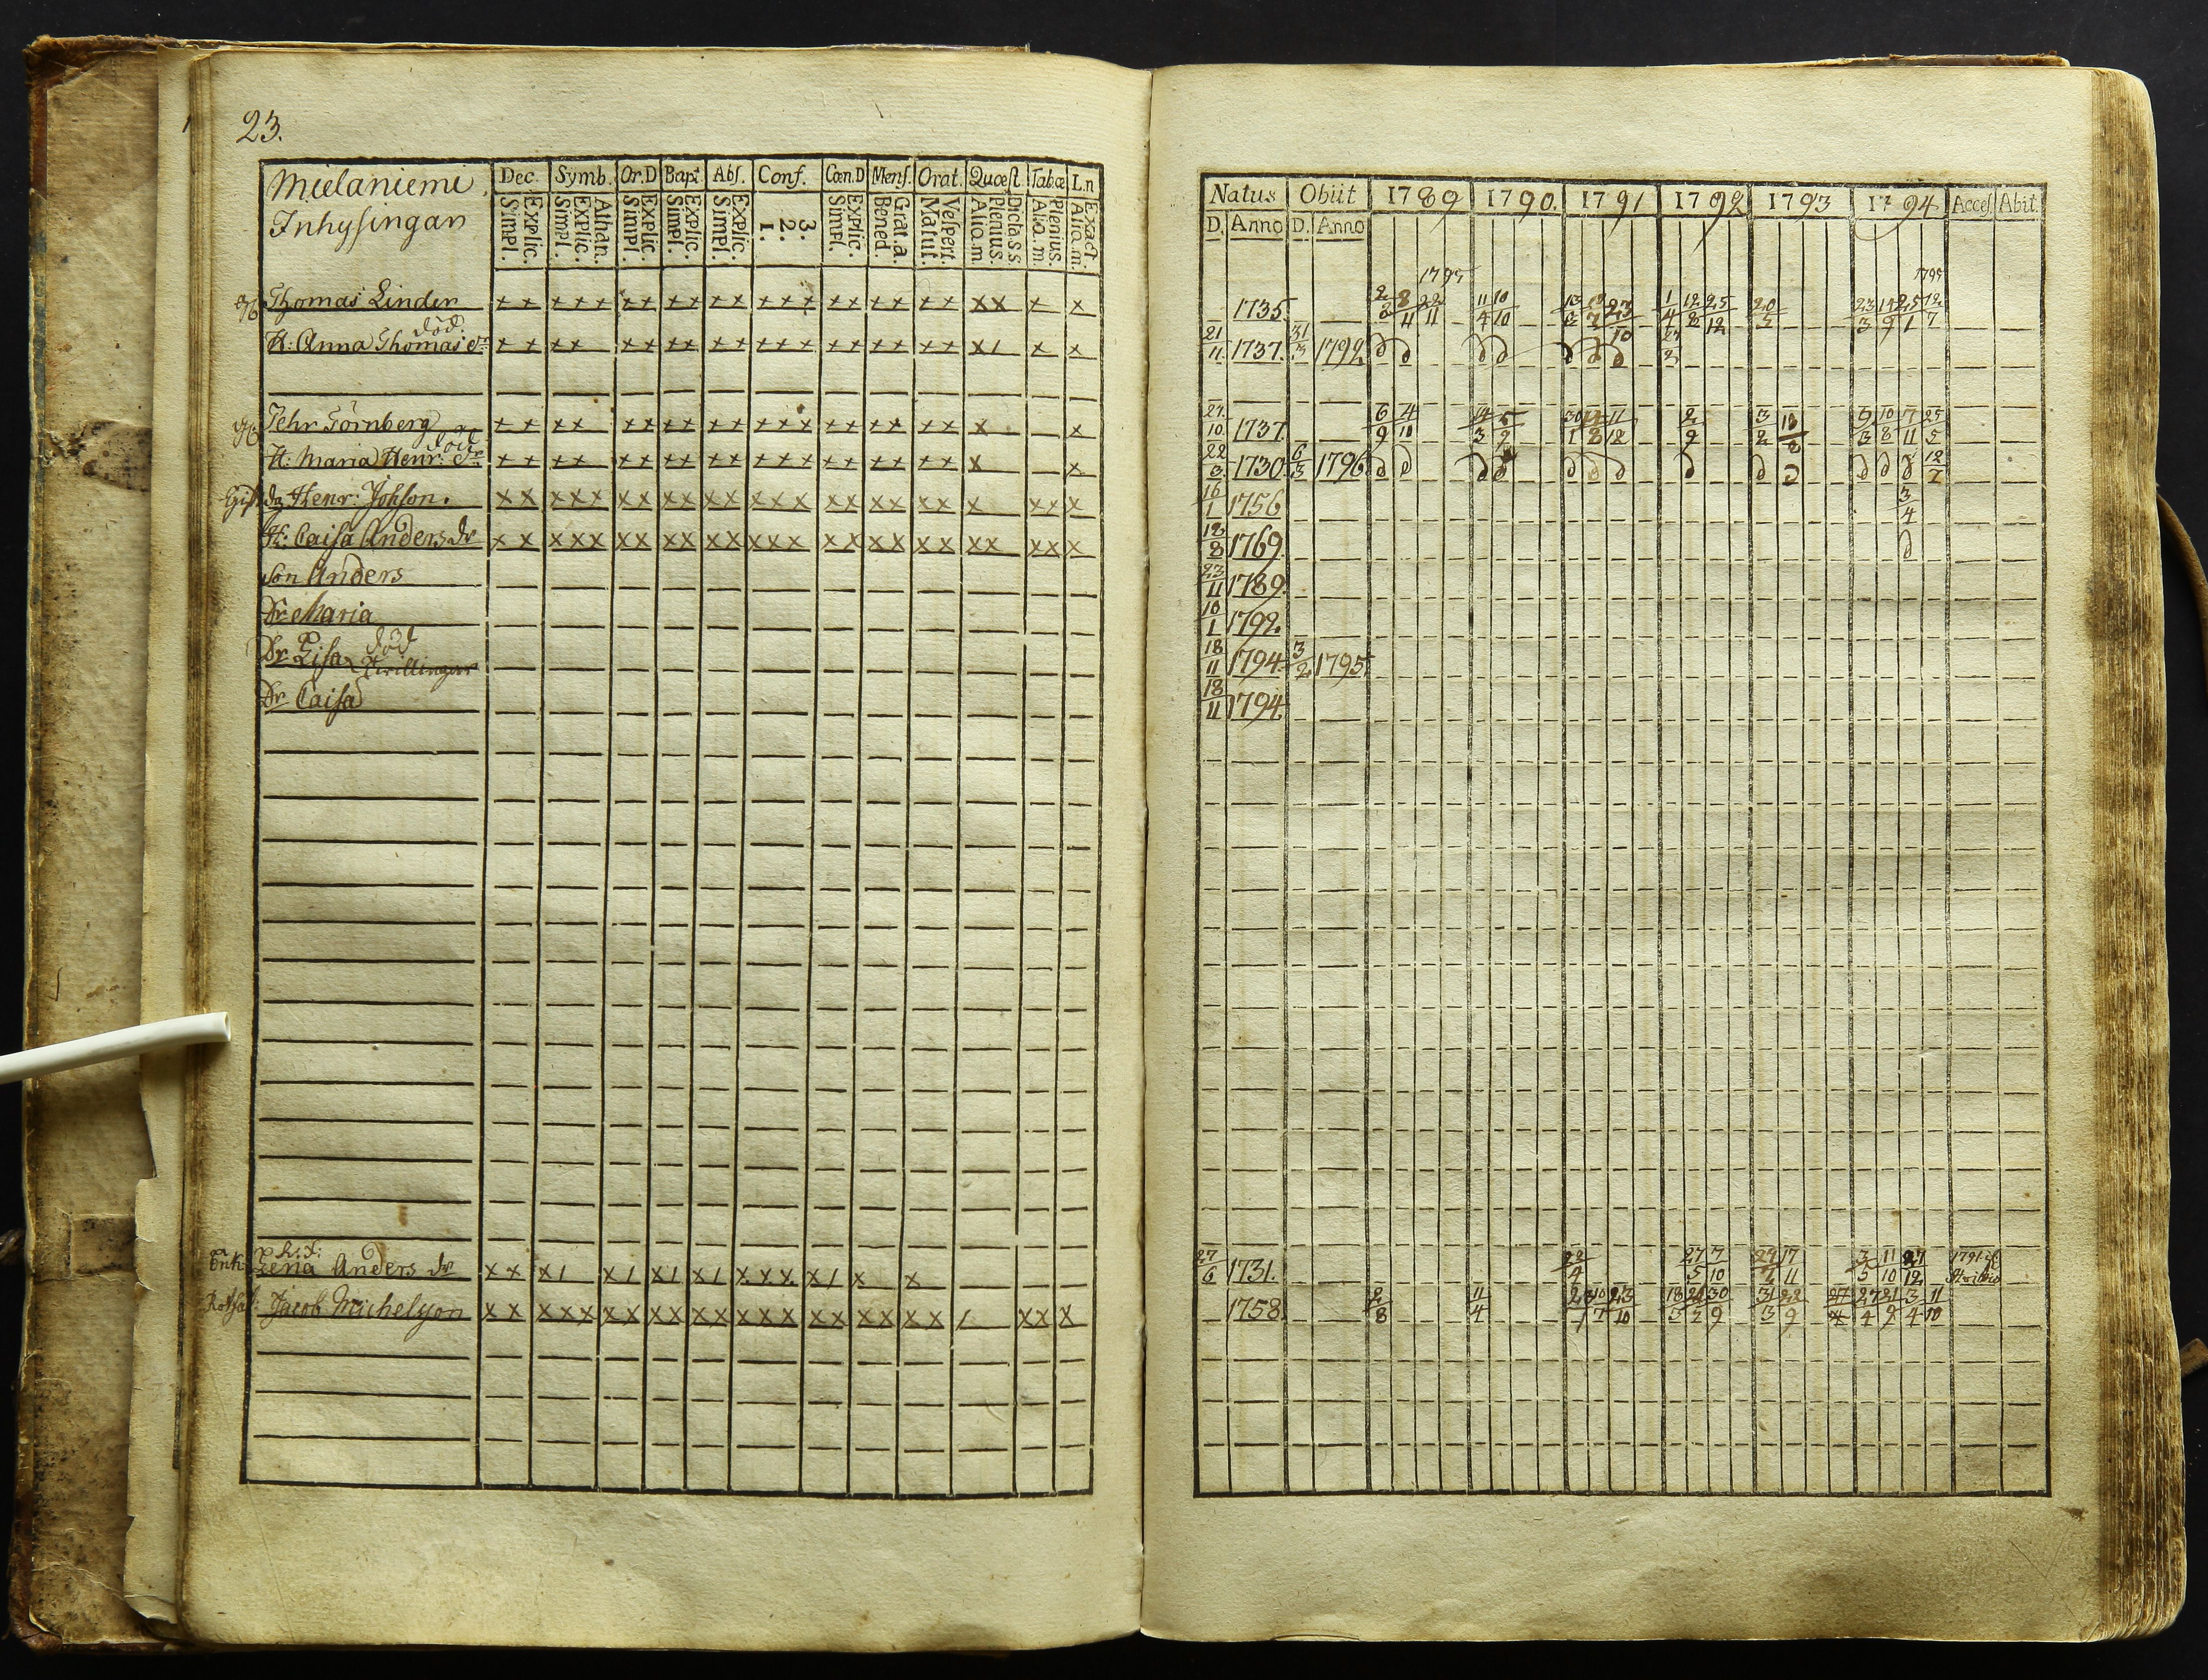 23.
Mielaniemi Dec. Symb. Or.D Bapt Abs. Conf. Cœn.D Mens. Orat. Quæst. Tabæ L.n
Inhysingar Simpl. Explic. Simpl. Explic. Athan. Simpl. Explic. Simpl. Explic. Simpl. Explic. 1. 2. 3. Simpl. Explic. Bened. Grat.a. Matut. Vespert. Alio.m. Plenius. Dicla.s.s Alio.m. Plenius. Alio.m. Exact.
Thomas Linder ++ +++ ++ ++ ++ +++ ++ ++ ++ xx + x
död
H: Anna Thomas dr ++ ++ ++ ++ ++ +++ ++ ++ ++ x/ x x
Pehr Törnberg ++ ++ ++ ++ ++ +++ ++ ++ ++ x x
död
H: Maria Henr: dr ++ ++ ++ ++ ++ +++ ++ ++ ++ x x
Henr: Johson. xx xxx xx xx xx xxx xx xx xx x xx x
H: Caisa Anders dr xx xxx xx xx xx xxx xx xx xx xx xx x
Son Anders
Dr Maria
död
Dr Lisa Tvillingar
Dr Caisa
Enk: Lena Anders dr xx x/ x/ x/ x/ xxx x/ x x
Jacob Michelsson xx xxx xx xx xx xxx xx xx xx / xx x
Natus Obiit 1789 1790. 1791 1792 1793 1794 Acces Abit.
D. Anno D. Anno
1795 1795
1735. 2/8 8/11 22/11 11/4 10/10 1/4 12/8 25/12 20/3 23/3 14/9 25/1 12/7
21/11 1737. 31/3 1792
27/10 1737. 6/9 4/10 14/3 30/1 11/12 2/9 3/2 10/8 7/11 25/5
22/3 1730. 6/3 1796 12/7
16/1 1756 3/4
12/8 1769
23/11 1789.
10/1 1792.
18/11 1794. 3/2 1795.
18/11 1794.
27/6 1731. 22/4 27/5 7/10 17/11 3/5 11/10 27/12 1791
1758. 2/8 11/4 10/7 23/10 18/3 30/9 31/3 22/9 27/4 3/4 11/10